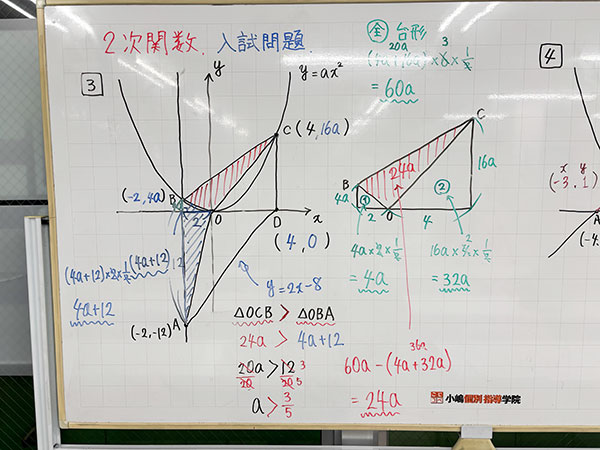 2次関数. 入試問題.
3
y
y=ax²
C(4,16a)
(-2,4a)
B
2
O
D
x
(4,0)
(4a+12)×2×1/2
(4a+12)
12
4a+12
A
(-2,-12)
y=2x-8
△OCB > △OBA
24a > 4a+12
20a > 12 3
20 20 5
a > 3/5
全 台形
20a 3
(4a+16a)×6×1/2
= 60a
C
B
24a
16a
4a
①
②
2
O
4
4a×2×1/2
= 4a
16a×4×1/2
= 32a
36a
60a-(4a+32a)
= 24a
小嶋個別指導学院
4
x y
(-3,1)
A
(-4.